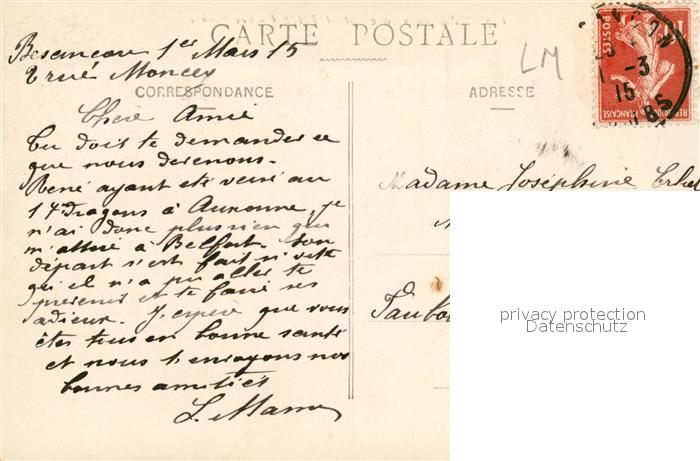 CARTE POSTALE
Besançon 1er Mars 15
2 rue Moncey
LM
CORRESPONDANCE
ADRESSE
Chère Amie
Tu doit te demander ce
que nous devenons.
René ayant été versé au
14 dragons à Auxonne, je
n'ai donc plus rien qui
m'attire à Belfort. Son
départ s'est fait si vite
qu'il n'a pu aller te
prevenir et te faire ses
adieux. J'espère que vous
êtes tous en bonne santé
et nous t'envoyons nos
bonnes amitiés
L.
Madame Joséphine
POSTES
REPUBLIQUE FRANÇAISE
-3
15
privacy protection
Datenschutz